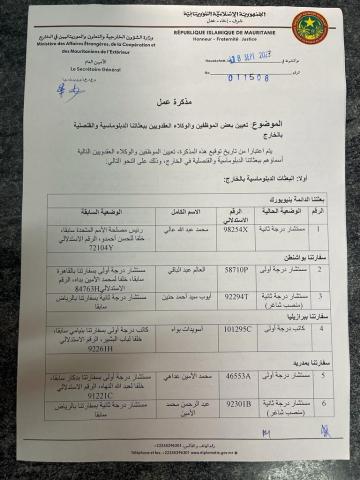 الجمهورية الإسلامية الموريتانية
شرف - إخاء - عدل
RÉPUBLIQUE ISLAMIQUE DE MAURITANIE
Honneur - Fraternité - Justice
وزارة الشؤون الخارجية والتعاون والموريتانيين في الخارج
Ministère des Affaires Étrangères, de la Coopération et
des Mauritaniens de l'Extérieur
الأمين العام
Le Secrétaire Général
Nouakchott, le 18 SEPT 2023
No 011508
مذكرة عمل
الموضوع: تعيين بعض الموظفين والوكلاء العقدويين ببعثاتنا الدبلوماسية والقنصلية
بالخارج
يتم اعتبارا من تاريخ توقيع هذه المذكرة، تعيين الموظفين والوكلاء العقدويين التالية
أسماؤهم ببعثاتنا الدبلوماسية والقنصلية في الخارج، وذلك على النحو التالي:
أولا: البعثات الدبلوماسية بالخارج:
بعثتنا الدائمة بنيويورك
الرقم
الوضعية الحالية
الرقم الاستدلالي
الاسم الكامل
الوضعية السابقة
1
مستشار درجة ثانية
98254X
محمد عبد الله عالي
رئيس مصلحة الأمم المتحدة سابقا،
خلفا للحسن أحمدو، الرقم الاستدلالي
72104Y
سفارتنا بواشنطن
2
مستشار درجة أولى
58710P
العالم عبد الباقي
مستشار درجة أولى بسفارتنا بالقاهرة
سابقا، خلفا لمحمد الأمين بداه، الرقم
الاستدلالي 84763H
3
مستشار درجة ثانية
(منصب شاغر)
92294T
أيوب سيد أحمد حنين
مستشار درجة ثانية بسفارتنا بالرياض
سابقا
سفارتنا ببرازيليا
4
كاتب درجة أولى
101295C
أسويدات بواه
كاتب درجة أولى بسفارتنا بنيامي سابقا،
خلفا لباب البشير، الرقم الاستدلالي
92261H
سفارتنا بمدريد
5
مستشار درجة أولى
46553A
محمد الأمين عداهي
مستشار درجة أولى بسفارتنا بدكار سابقا،
خلفا لعبد الله النهاه، الرقم الاستدلالي
91221C
6
مستشار درجة ثانية
(منصب شاغر)
92301B
عبد الرحمن محمد
الأمين
مستشار درجة ثانية بسفارتنا بالرياض
سابقا
www.diplomatie.gov.mr